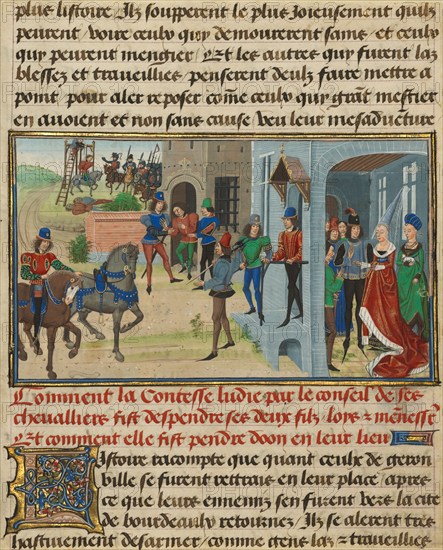 plus listoire Ilz soupperent le plus Joieusement quilz
peurent voire ceulx quy demourerent sains et ceulx
quy peurent mengier Et les autres quy furent la
blessez et traveillies penserent deulz faire mettre a
point pour aler reposer com̄e ceulx quy grāt mestier
en avoient et non sans cause veu leur mesaducture
Comment la Contesse ludie par le conseil de ses
chevalliers fist despendre ses deux filz lors ⁊ menesser̄
Et comment elle fist pendre doon en leur lieu
Istoire racompte que quant ceulx de geron
ville se furent retrais en leur place apres
ce que leurs ennemis sen furent vers la cite
de bourdeaulx retournez Ilz se alerent tres
hastivement desarmer comme gens las ⁊ traveillies